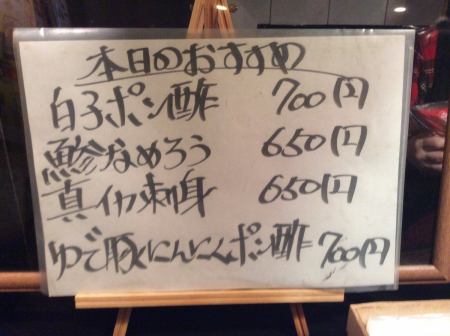 本日のおすすめ
白子ポン酢 700円
鯵なめろう 650円
真イカ刺身 650円
ゆで豚にんにくポン酢 700円